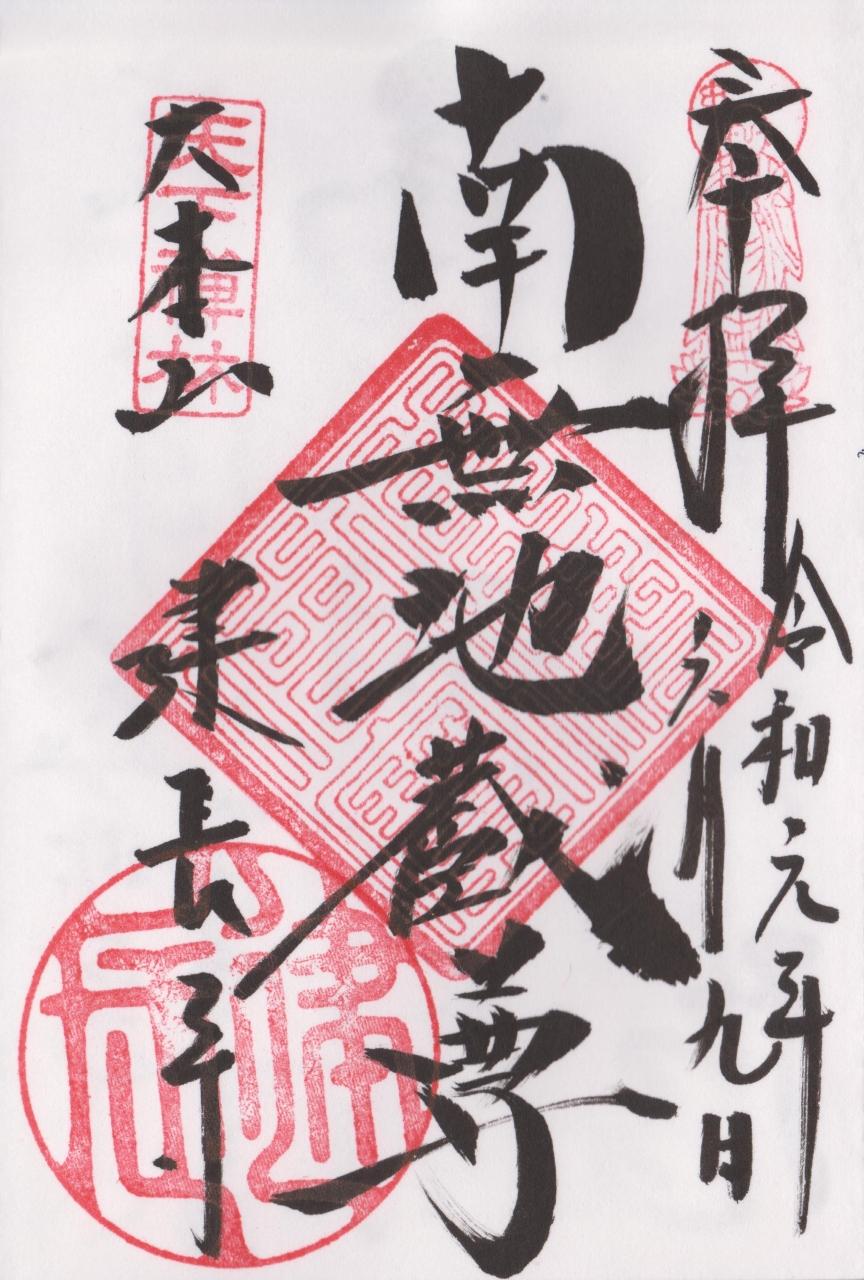 奉拝
令和元年
六月九日
南無地蔵尊
大本山
建長寺
天下禅林